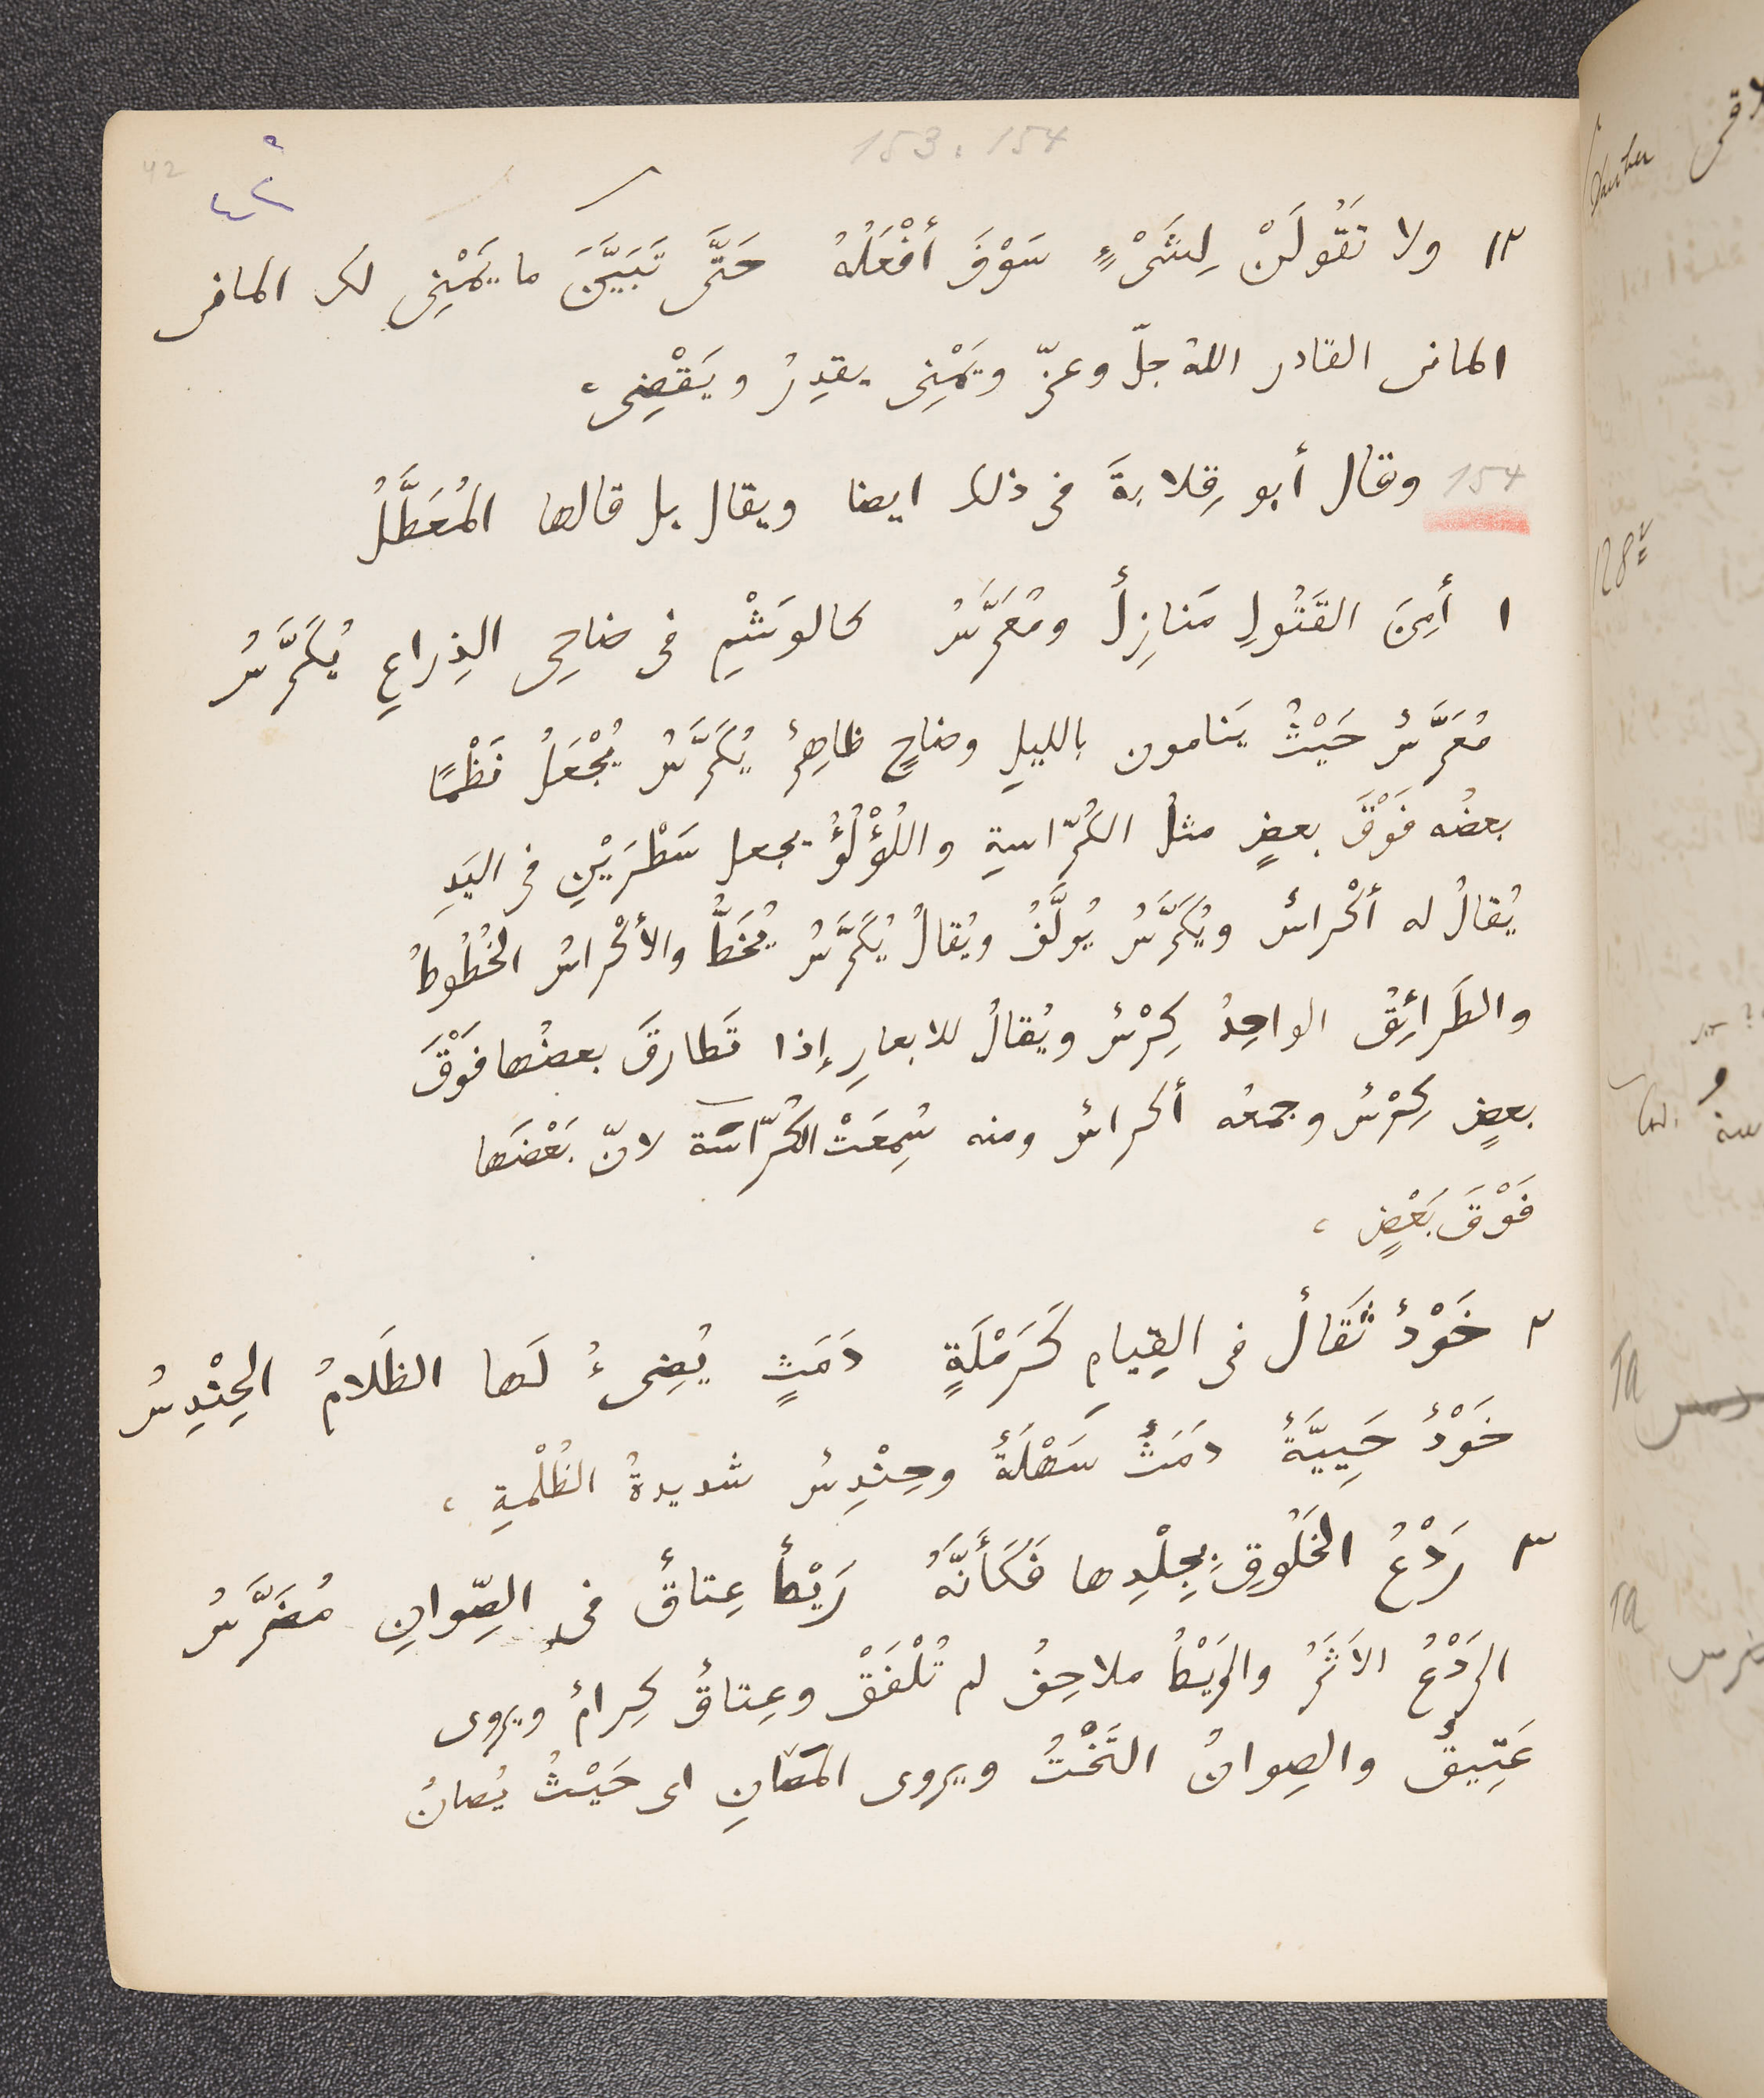 42
٤٢
153. 154
١٢ ولا تَقُولَنْ لِشَىْءٍ سَوْفَ أَفْعَلُهُ حَتَّى تَبَيَّنَ ما يَمْنِى لك المانى
المانى القادر اللهُ جلّ وعزّ ويَمْنِى يقدِرُ ويَقْضِى،
154 وقال أبو قِلابةَ فى ذلك ايضا ويقال بل قالها المُعَطَّلُ
١ أَمِنَ القَتُولِ مَنازِلٌ ومُعَرَّسُ كالوَشْمِ فى ضاحِى الذِراعِ يُكَرَّسُ
مُعَرَّسٌ حَيْثُ يَنامون بالليلِ وضاحٍ ظاهِرٌ يُكَرَّسُ يُجْعَلُ نَظْمًا
بعضُه فَوْقَ بعضٍ مثلُ الكُرّاسةِ واللُؤْلُؤُ يجعل سَطْرَيْنِ فى اليَدِ
يُقالُ له أكْراسٌ ويُكَرَّسُ يُولَّفُ ويُقالُ يُكَرَّسُ يُخَطُّ والأكْراسُ الخُطُوطُ
والطَرائِقُ الواحِدُ كِرْسٌ ويُقالُ للابعارِ إذا تَطارقَ بعضُها فَوْقَ
بعضٍ كِرْسٌ وجمعُه أكراسٌ ومنه سُمِعَتْ الكُرّاسَة لانّ بَعْضَها
فَوْقَ بَعْضٍ،
٢ خَوْدٌ ثَقالٌ فى القِيامِ كَرَمْلَةٍ دَمَثٍ يُضِىءُ لَها الظَلامُ الحِنْدِسُ
خَوْدٌ حَيِيَّةٌ دَمَثٌ سَهْلَةٌ وحِنْدِسٌ شديدةُ الظُلْمةِ،
٣ رَدْعُ الخَلُوقِ بِجِلْدِها فَكَأَنَّهُ رَيْطٌ عِتاقٌ فى الصِّوانِ مُضَرَّسُ
الرَدْعُ الاَثَرُ والرَيْطُ ملاحِفُ لم تُلْفَقْ وعِتاقٌ كِرامٌ ويروى
عَتِيقٌ والصِوانُ التَخْتُ ويروى المَصانِ اى حَيْثُ يُصانُ